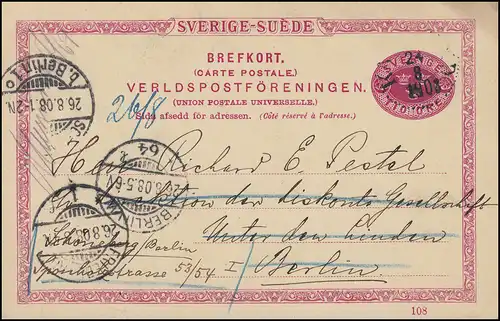 SVERIGE-SUÈDE
BREFKORT.
(CARTE POSTALE.)
VERLDSPOSTFÖRENINGEN.
(UNION POSTALE UNIVERSELLE.)
Sida afsedd för adressen. (Côté réservé à l'adresse.)
SVERIGE
TIO ÖRE
24
8
26/8
b. Berlin 1
26.8.03.1-2N.
64
BERLIN
26.8.03.5-6N.
26.8.03
Herr Richard E. Pestal
Direktion der diskonto Gesellschaft
Unter den Linden
Berlin.
Schöneberg/Berlin
Sponholzstrasse 53/54 I
108